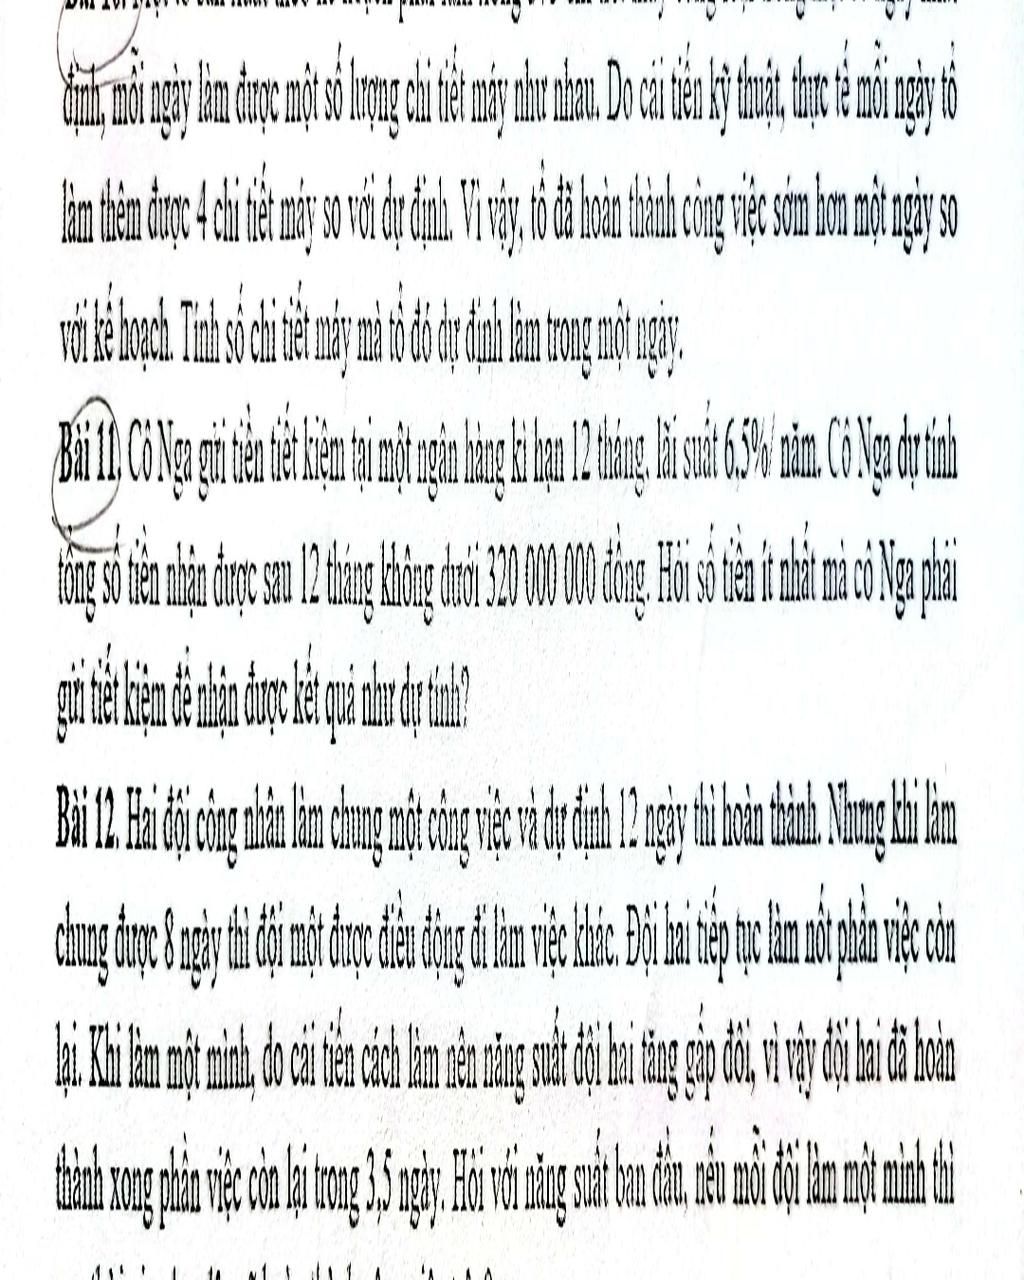 định, mỗi ngày làm được một số lượng chi tiết máy như nhau. Do cải tiến kỹ thuật, thực tế mỗi ngày tổ
làm thêm được 4 chi tiết máy so với dự định. Vì vậy, tổ đã hoàn thành công việc sớm hơn một ngày so
với kế hoạch. Tính số chi tiết máy mà tổ đó dự định làm trong một ngày.
Bài 11. Cô Nga gửi tiền tiết kiệm tại một ngân hàng kì hạn 12 tháng, lãi suất 6,5%/ năm. Cô Nga dự tính
tổng số tiền nhận được sau 12 tháng không dưới 320 000 000 đồng. Hỏi số tiền ít nhất mà cô Nga phải
gửi tiết kiệm để nhận được kết quả như dự tính?
Bài 12. Hai đội công nhân làm chung một công việc và dự định 12 ngày thì hoàn thành. Nhưng khi làm
chung được 8 ngày thì đội một được điều động đi làm việc khác. Đội hai tiếp tục làm nốt phần việc còn
lại. Khi làm một mình, do cải tiến cách làm nên năng suất đội hai tăng gấp đôi, vì vậy đội hai đã hoàn
thành xong phần việc còn lại trong 3,5 ngày. Hỏi với năng suất ban đầu, nếu mỗi đội làm một mình thì